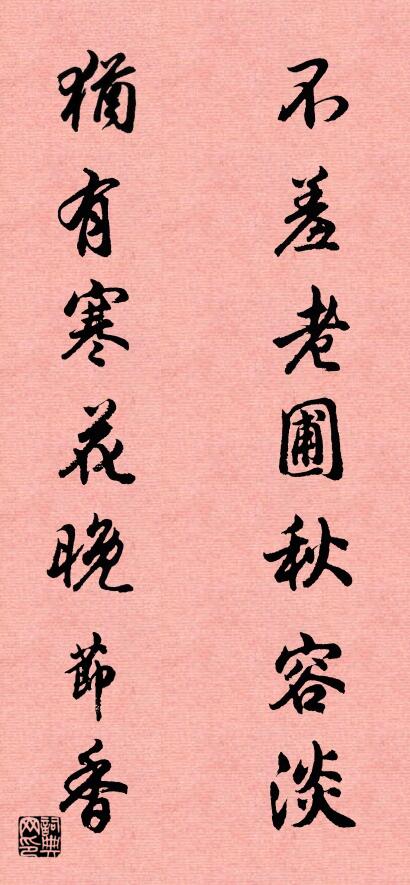 不羞老圃秋容淡
猶有寒花晚節香
詞典网印